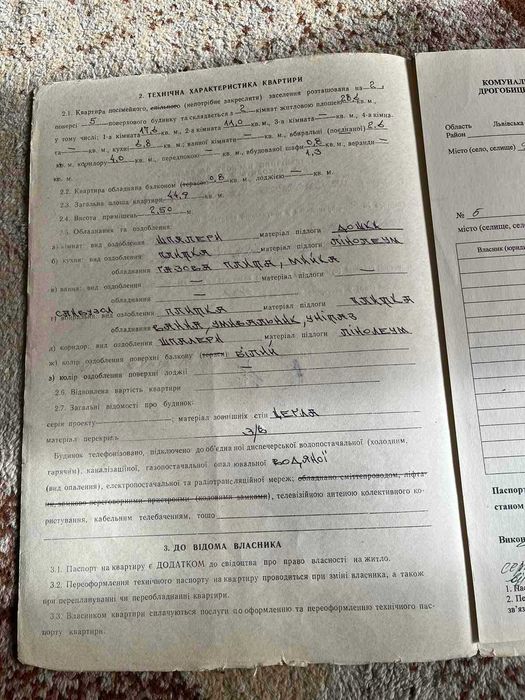 2. ТЕХНІЧНА ХАРАКТЕРИСТИКА КВАРТИРИ
2.1. Квартира посімейного, спільного (непотрібне закреслити) заселення розташована на 2
поверсі 5 -поверхового будинку та складається з 2 кімнат житловою площею 28,6 кв. м.,
у тому числі: 1-а кімната 17,6 кв. м., 2-а кімната 11,0 кв. м., 3-а кімната — кв. м., 4-а кімна-
та — кв. м., кухні 6,8 кв. м.; ванної кімнати — кв. м., вбиральні (поєднаної) 2,6
кв. м. коридору 4,0 кв. м., передпокою — кв. м., вбудованої шафи 0,8 кв. м., веранди —
кв. м. 1,3
2.2. Квартира обладнана балконом (тераса) 0,8 кв. м., лоджією — кв. м.
2.3. Загальна площа квартири 44,9 кв. м.
2.4. Висота приміщень 2,50 м.
2.5. Обладнання та оздоблення:
а) кімнат: вид оздоблення ШПАЛЕРИ матеріал підлоги ДОШКИ
б) кухня: вид оздоблення ПЛИТКА матеріал підлоги ЛІНОЛЕУМ
обладнання ГАЗОВА ПЛИТА, МИЙКА
в) ванна: вид оздоблення — матеріал підлоги —
обладнання —
САНВУЗОЛ
г) вбиральня: вид оздоблення ПЛИТКА матеріал підлоги ПЛИТКА
обладнання ВАННА, УМИВАЛЬНИК, УНІТАЗ
д) коридор: вид оздоблення ШПАЛЕРИ матеріал підлоги ЛІНОЛЕУМ
ж) колір оздоблення поверхні балкону (тераси) БІЛИЙ
з) колір оздоблення поверхні лоджії —
2.6. Відновлена вартість квартири
2.7. Загальні відомості про будинок:
серія проекту ; матеріал зовнішніх стін ЦЕГЛА
матеріал перекрить З/Б
Будинок телефонізовано, підключено до об'єднаної диспечерської водопостачальної (холодним,
гарячим), каналізаційної, газопостачальної опалювальної ВОДЯНОЇ
(вид опалення), електропостачальної та радіотрансляційної мереж; обладнано сміттєпроводом, ліфта-
ми, замково переговорними пристроями (кодовими замками), телевізійною антеною колективного ко-
ристування, кабельним телебаченням, тощо
3. ДО ВІДОМА ВЛАСНИКА
3.1. Паспорт на квартиру є ДОДАТКОМ до свідоцтва про право власності на житло.
3.2. Переоформлення технічного паспорту на квартиру проводиться при зміні власника, а також
при переплануванні чи переобладнанні квартири.
3.3. Власником квартири сплачуються послуги по оформленню та переоформленню технічного пас-
порту квартири.
КОМУНАЛ
ДРОГОБИЦ
Область Львівська
Район
Місто (село, селище)
№ 5
місто (селище, село
Власник (юриди
Паспорт
станом
Викон
1. Нас
2. Пе
зв'яз